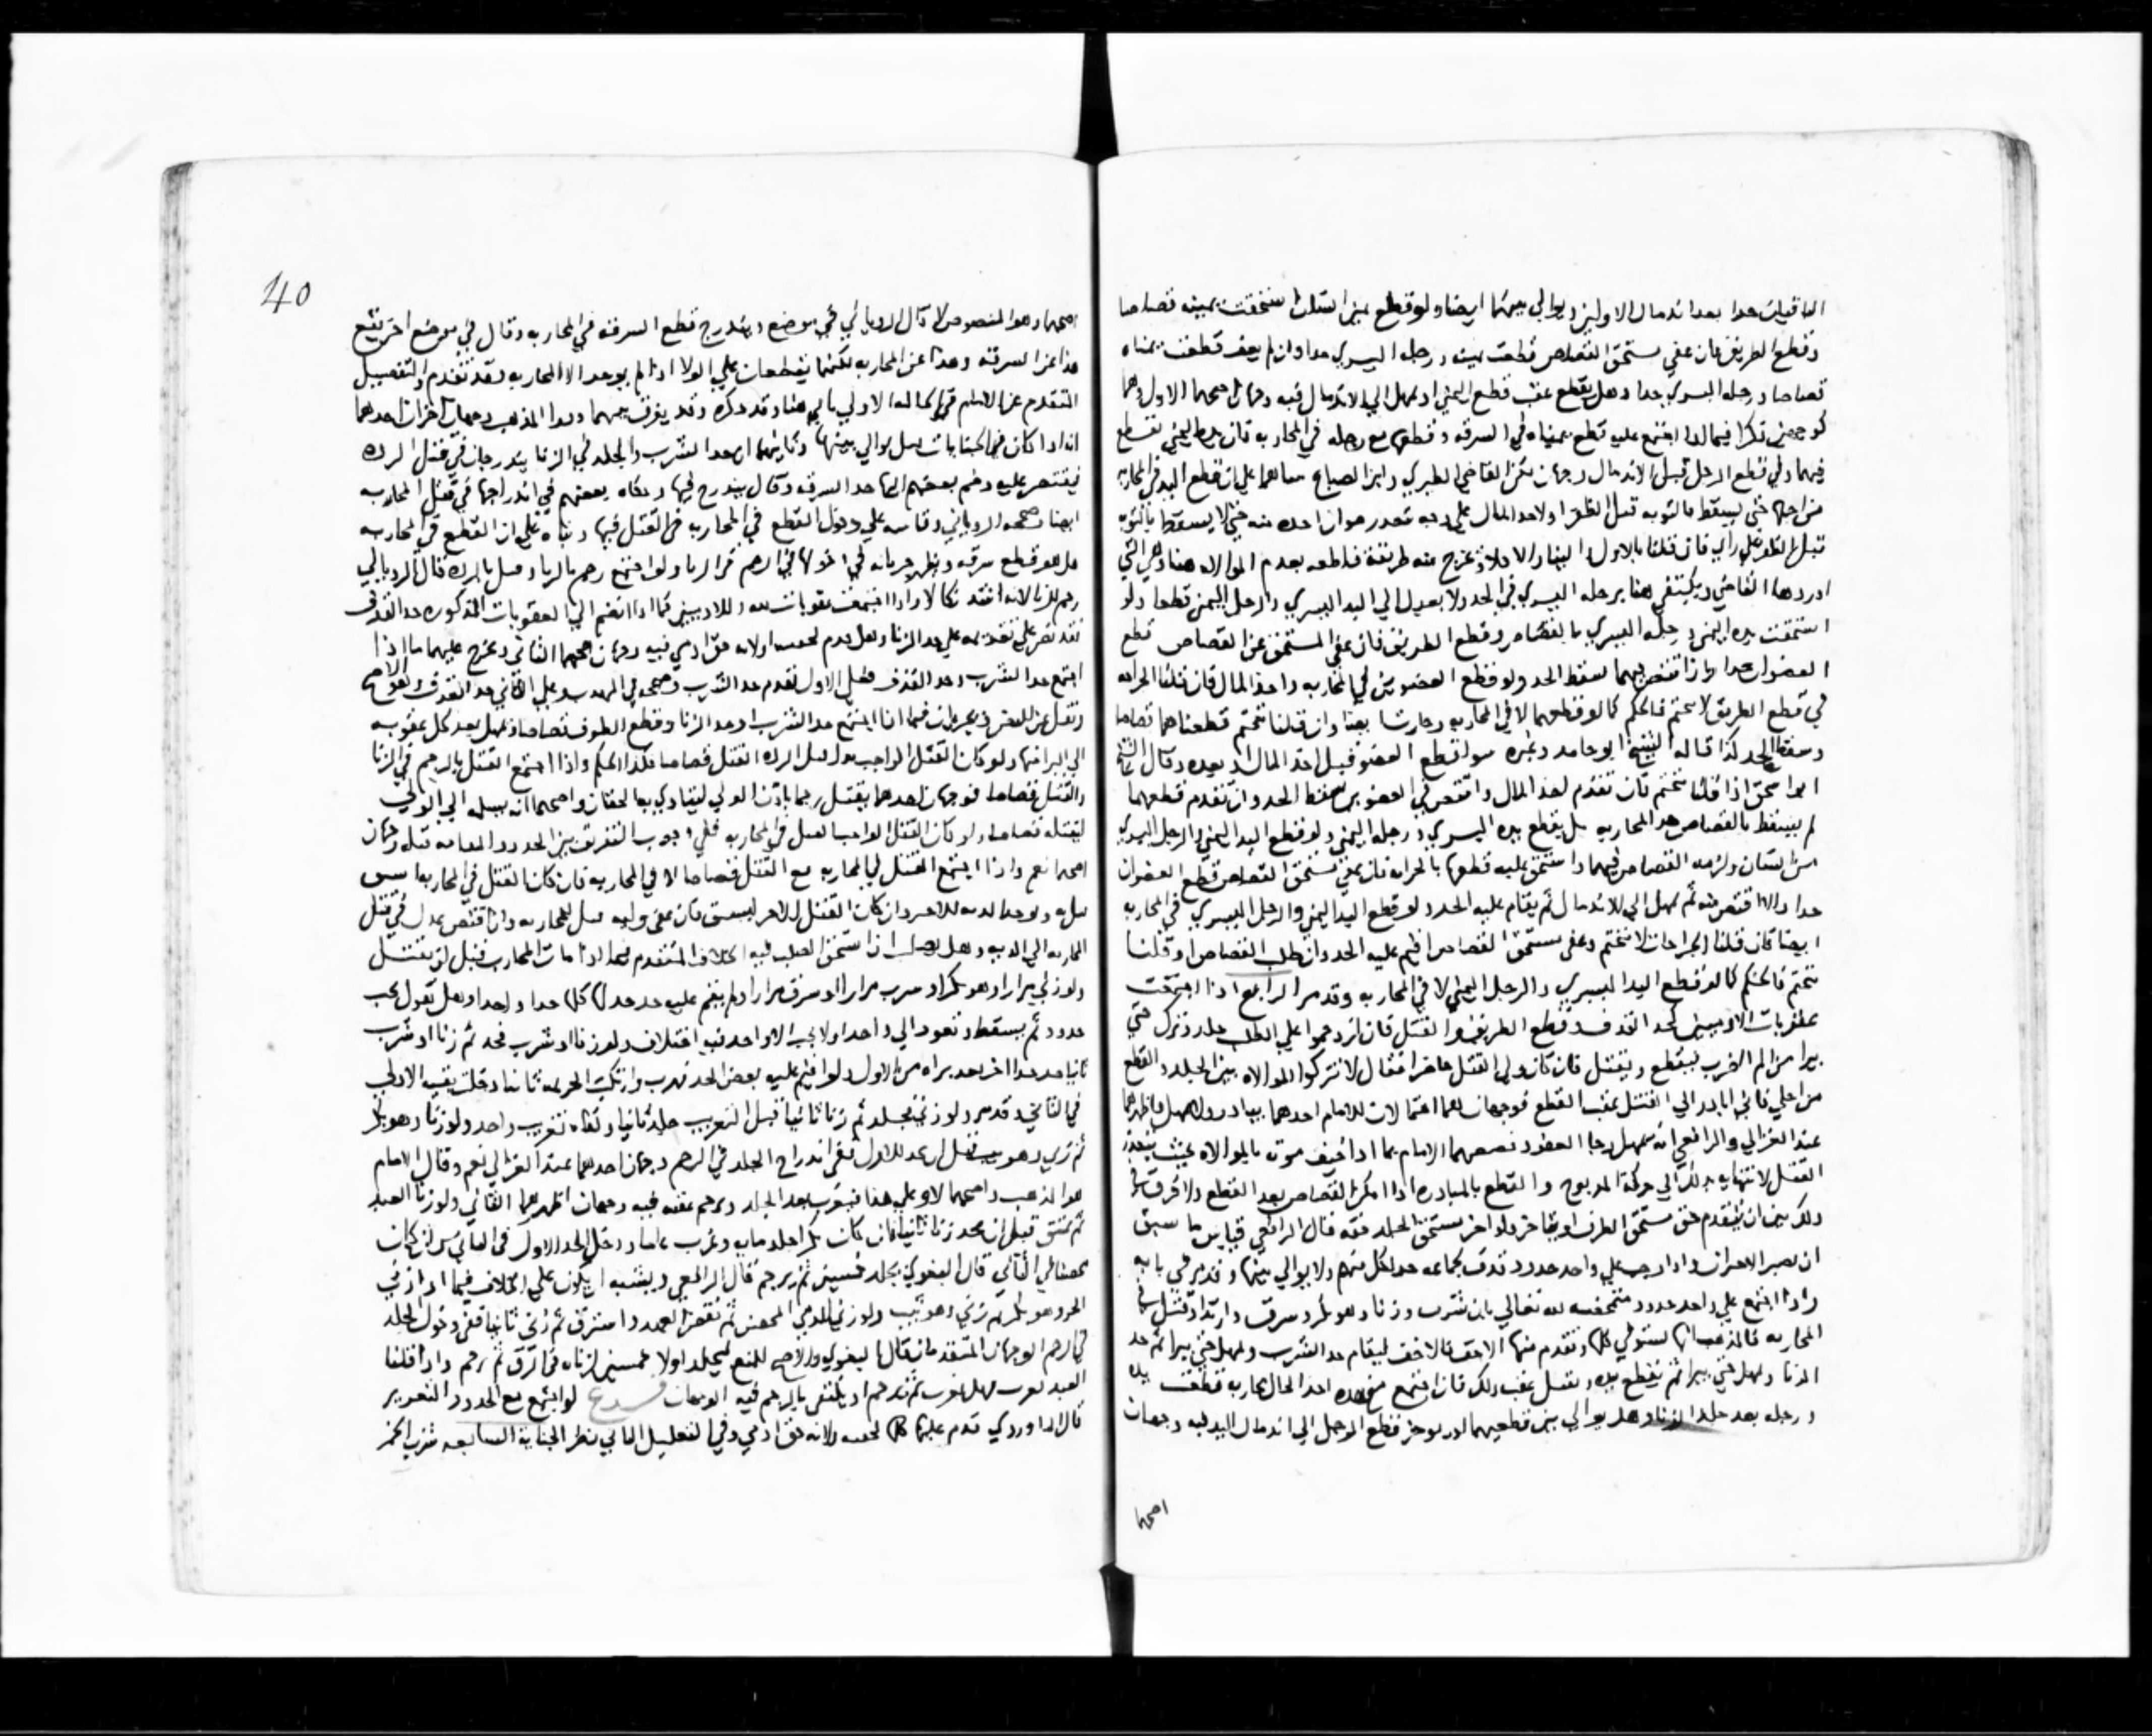 الباقيان حدا بعد اندمال الاولين ويوالي بينهما ايضا ولو قطع يمين انسان استحقت يمينه قصاصا
وقطع الطريق فان عفي مستحق القصاص قطعت يمينه ورجله اليسري حدا وان لم يعف قطعت يمناه
قصاصا ورجله اليسري حدا وهل يقطع عقب قطع اليمني او يمهل الي الاندمال فيه وجهان اصحهما الاول وهما
كوجهين ذكرا فيما اذا اجتمع عليه قطع يمناه في السرقه وقطعها مع رجله في المحاربه فان يده اليمني تقطع
فيهما وفي قطع الرجل قبل الاندمال وجهان القاضي الطبري وابن الصباغ علي ان قطع اليد في المحاربه
حتي يسقط بالتوبه قبل الظفر اولاخذ المال علي وجه حتي لا يسقط بالتوبه
قبل الظفر علي راي فان قلنا بالاول والا فلا وتخرج منه طريقة قاطعه بعدم الموالاه هنا وهي التي
اوردها القاضي ويكتفي هنا برجله اليسري في الحد ولا يعدل الي اليد اليسري والرجل اليمني قطعا ولو
استحقت يده اليمني ورجله اليسري بالقصاص وقطع الطريق فان عفي المستحق عن القصاص قطع
العضوان حدا وان اقتص بهما سقط الحد ولو قطع العضوين في المحاربه واخذ المال فان قلنا الجراحه
في قطع الطريق لا تتحتم فالحكم كما لو قطعهما لا في المحاربه وان قلنا تتحتم قطعناهما قصاصا
وسقط الحد كذا قاله الشيخ ابو حامد وغيره سوا قطع العضو قبل اخذ المال او بعده وقال الشيخ
ابو اسحق اذا قلنا تتحتم فان تقدم اخذ المال واقتص في العضوين سقط الحد وان تقدم قطعهما
لم يسقط بالقصاص حد المحاربه بل يقطع يده اليسري ورجله اليمني ولو قطع اليد اليمني والرجل اليسري
من انسان ولزمه القصاص فيهما واستحق عليه قطعها بالحرابه فان عفي مستحق القصاص قطع العضوان
حدا والا اقتص منه ثم يمهل الي الاندمال ثم يقام عليه الحد ولو قطع اليد اليمني والرجل اليسري في المحاربه
ايضا فان قلنا الجراحات لا تتحتم وعفي مستحق القصاص اقيم عليه الحد وان طلب القصاص او قلنا
تتحتم فالحكم كما لو قطع اليد اليسري والرجل اليمني لا في المحاربه وقد مر الرابع اذا اجتمعت
عقوبات الادميين كحد القذف وقطع الطرف والقتل فان ازدحموا علي الطلب جلد وترك حتي
يبرا من الم الضرب فيقطع ويقتل فان كان ولي القتل حاضرا فقال لا تتركوا الموالاه بين الجلد والقطع
من اجلي فاني ابادر الي القتل عقب القطع فوجهان احدهما يبادر ولا يمهل واظهرهما
عند الغزالي والرافعي انه يمهل رجا العفو وخصصهما الامام بما اذا خيف موته بالموالاه بحيث يتعذر
القتل لانتهايه بذلك الي حركة المذبوح والقطع بالمبادره اذا امكن القصاص بعد القطع ولا فرق في
ذلك بين ان يتقدم حق مستحق الطرف او يتاخر ولو اخر مستحق الجلد حقه قال الرافعي قياس ما سبق
ان يصبر الاخران واذا وجب علي واحد حدود قذف لجماعه حد لكل منهم ولا يوالي بينها وقد مر في بابه
واذا اجتمع علي واحد حدود متمحضه لله تعالي بان شرب وزنا وهو بكر وسرق وارتد او قتل في
المحاربه فالمذهب انها تستوفي كلها ويقدم منها الاخف فالاخف فيقام حد الشرب ويمهل حتي يبرا ثم حد
الزنا ويمهل حتي يبرا ثم يقطع يده ويقتل عقب ذلك فان اجتمع مع هذه اخذ المال بمحاربه قطعت يده
ورجله بعد جلد الزنا وهل يوالي بين قطعيهما او يوخر قطع الرجل الي اندمال اليد فيه وجهان
اصحهما
40
اصحهما وهو المنصوص لا قال الروياني في موضع ويندرج قطع السرقة في المحاربه وقال في موضع اخر يقع
هذا عن السرقه وهذا عن المحاربه لكنهما يقطعان علي الولا اذا لم يوجد الا المحاربه فقد تقدم والتفصيل
المتقدم عن الامام في الحاله الاولي ياتي هنا وقد ذكره وقد يفرق بينهما وورا المذهب وجهان اخران احدهما
انه اذا كان في الحنايات قتل يوالي بينها وثانيهما ان حد الشرب والجلد في الزنا يندرجان في قتل الرده
فيقتصر عليه وضم بعضهم اليها حد السرقه وقال يندرج فيها وحكاه بعضهم في اندراجها في قتل المحاربه
ايضا وصححه الروياني وقاسه علي دخول القطع في المحاربه في القتل فيها وبناه علي ان القطع في المحاربه
هل هو قطع سرقه ويظهر جريانه في دخولها في الرجم في الزنا ولو اجتمع رجم بالزنا وقتل بالرده قال الروياني
رجم للزنا لانه اشد نكالا واذا اجتمعت عقوبات لله وللادميين كما اذا انضم الي العقوبات المذكوره حد القذف
فقد نص علي تقديمه علي حد الزنا وهل قدم لخفته او لانه حق ادمي فيه وجهان اصحهما الثاني ويخرج عليهما ما اذا
اجتمع حد الشرب وحد القذف فعلي الاول تقدم حد الشرب وصححه في المهذب وعلي الثاني حد القذف وهو الاصح
ونقل عن النص ويجريان فيما اذا اجتمع حد الشرب او حد الزنا وقطع الطرف قصاصا ويمهل بعد كل عقوبه
الي البرا منها ولو كان القتل الواجب بدل قتل الرده القتل قصاصا فكذا الحكم واذا اجتمع القتل بالرجم في الزنا
والقتل قصاصا فوجهان احدهما يقتل رجما باذن الولي ليتادي به الحقان واصحهما انه يسلم الي الولي
ليقتله قصاصا ولو كان القتل الواجب القتل في المحاربه ففي وجوب التفريق بين الحدود المقامه قبله وجهان
اصحهما نعم واذا اجتمع القتل في المحاربه مع القتل قصاصا لا في المحاربه فان كان القتل في المحاربه اسبق
قتل به ويوخذ الديه للاخر وان كان القتل الاخر اسبق فان عفي وليه قتل للمحاربه وان اقتص عدل في قتل
المحاربه الي الديه وهل الخلاف المتقدم فيما اذا مات المحارب قبل ان يقتل
ولو زني مرارا وهو بكر او شرب مرارا او سرق مرارا ولم يقم عليه حد حد لها كلها حدا واحدا وهل تقول يجب
حدود ثم يسقط وتعود الي واحد او لا يجب الا واحد فيه اختلاف ولو زنا او شرب فحد ثم زنا او شرب
ثانيا حد حدا اخر بعد براه من الاول ولو اقيم عليه بعض الحد فهرب وارتكب الجريمه ثانيا دخلت بقيه الاولي
في الثاني وقد مر ولو زني فجلد ثم زنا ثانيا قبل التغريب جلد ثانيا وكفاه تغريب واحد ولو زنا وهو بكر
ثم زني وهو ثيب قبل ان يحد للاول ففي اندراج الجلد في الرجم وجهان احدهما عند الغزالي نعم وقال الامام
هو المذهب واصحهما لا وعلي هذا فيغرب بعد الجلد ويرجم عقبه فيه وجهان اظهرهما الثاني ولو زنا العبد
ثم عتق قبل ان يحد زنا ثانيا فان كان بكرا جلد مايه وغرب عاما ودخل الحد الاول في الثاني وان كان
محصنا في الثاني قال البغوي يجلد خمسين ثم يرجم قال الرافعي ويشبه ان يكون علي الخلاف فيما اذا زني
الحر وهو بكر ثم زني وهو ثيب ولو زني الذمي المحصن ثم نقض العهد واسترق ثم زني ثانيا ففي دخول الجلد
في الرجم الوجهان المتقدمان قال البغوي والاصح المنع فيجلد اولا خمسين لزناه في الرق ثم يرجم واذا قلنا
العبد يغرب فهل يغرب ثم يرجم او يكتفي بالرجم فيه الوجهان فرع لو اجتمع مع الحدود التعزير
قال الماوردي قدم عليها كلها لخفته ولانه حق ادمي وفي التعليل الثاني نظر الجناية السابعه شرب الخمر